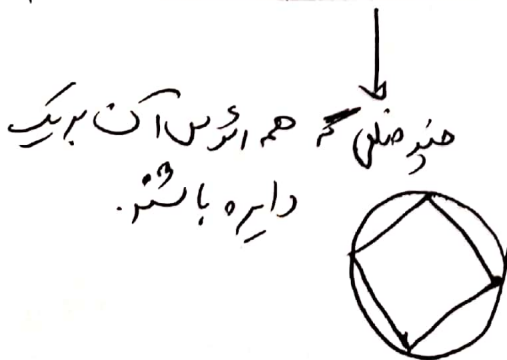 چند ضلعی که همه رئوس آن بر یک
دایره باشند.